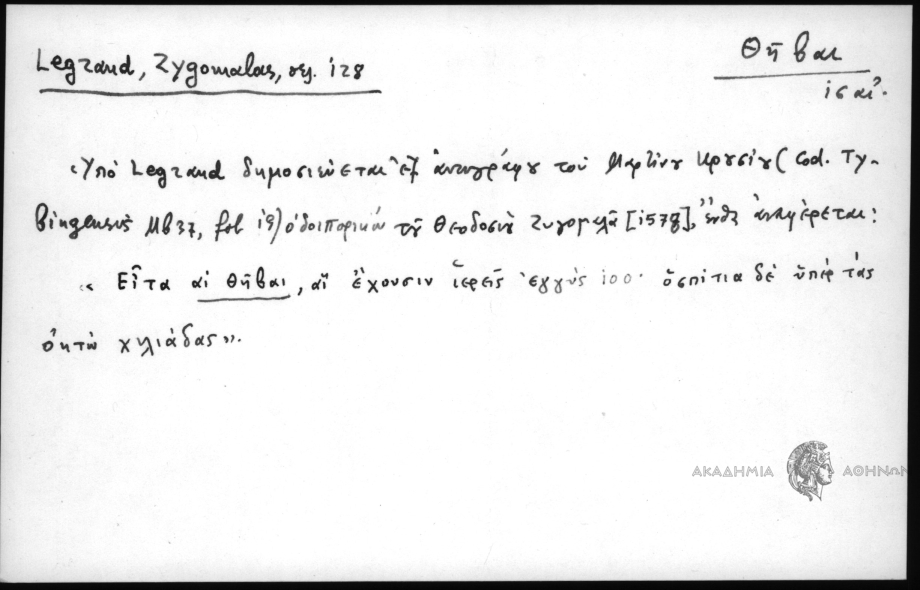 Legrand, Zygomalas, σελ. 128
Θῆβαι
ις αἰ.
«Ὑπὸ Legrand δημοσιεύεται ἐξ ἀντιγράφου τοῦ Μαρτίνου Κρουσίου (Cod. Ty-
bingensis Mb 37, fol 19) ὁδοιπορικὸν τοῦ Θεοδοσίου Ζυγομαλᾶ [1578], ἔνθα ἀναφέρεται:
« Εἶτα αἱ Θῆβαι, αἳ ἔχουσιν ἱερεῖς ἐγγὺς 100· ὁσπίτια δὲ ὑπὲρ τὰς
ὀκτὼ χιλιάδας».
ΑΚΑΔΗΜΙΑ ΑΘΗΝΩΝ